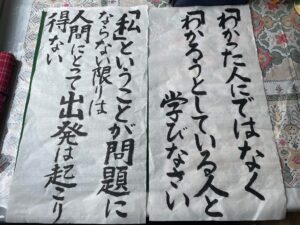 「わかった人にではなく
「わかろうとしている人と
学びなさい
「私」ということが問題に
ならない限りは
人間にとって出発は起こり
得ない